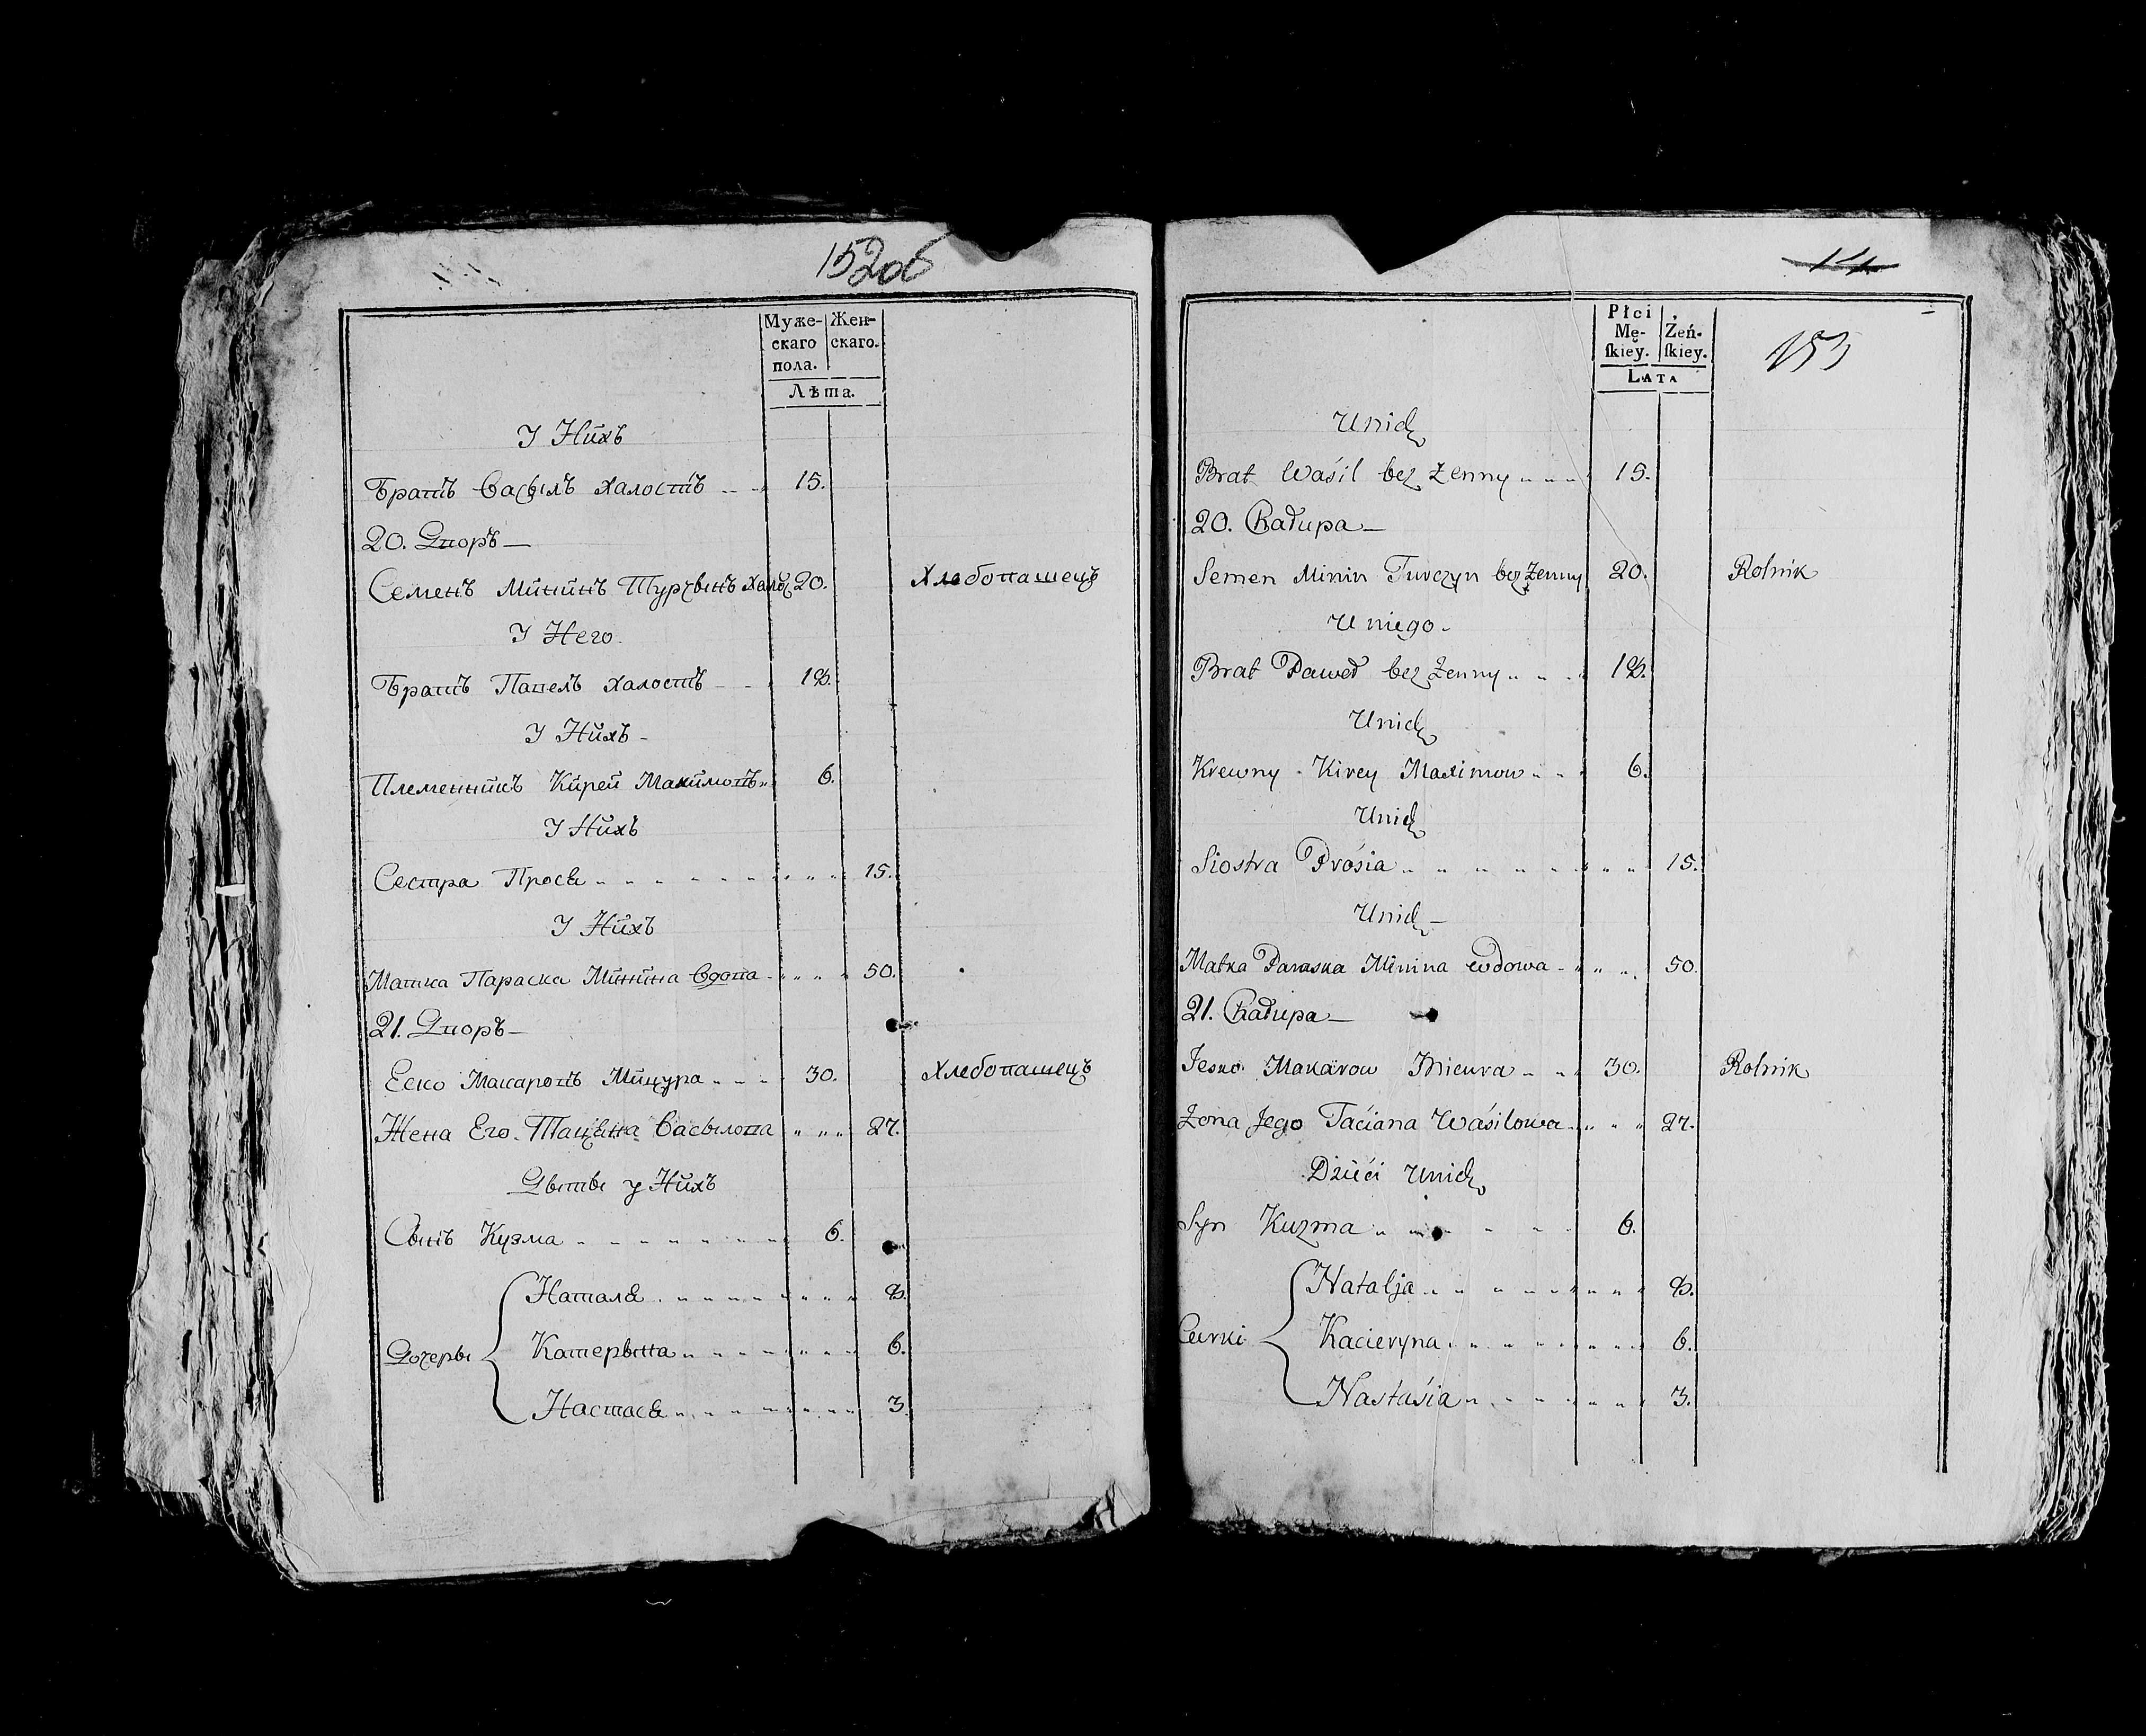 152об
Муже-скаго пола. Жен-скаго.
Лѣта.
У Нихъ
Братъ Васылъ халостъ 15.
20. Дворъ
Семенъ Мининъ Турчынъ халос 20. Хлебопашецъ
У Него.
Братъ Павелъ халостъ 18.
У Нихъ
Племенникъ Кирей Макимовъ 6.
У Нихъ
Сестра Прося 15.
У Нихъ
Матка Параска Минина вдова 50.
21. Дворъ
Еско Макаровъ Мицура 30. Хлебопашецъ
Жена Его Тацяна Васылова 27.
Дѣти у Нихъ
Сынъ Кузма 6.
Наталя 8.
Дочеры Катерына 6.
Настася 3.
153
Płci Mę-ſkiey. Żeń-ſkiey.
LATA
Unich
Brat Waśil bez Żenny 15.
20. Chałupa
Semen Minin Turczyn bez Żenny 20. Rolnik
U niego.
Brat Paweł bez Żenny 18.
Unich
Krewny Kirey Maximow 6.
Unich
Siostra Prósia 15.
Unich
Matka Paraska Minina wdowa 50.
21. Chałupa
Jesko Makarow Micura 30. Rolnik
Żona Jego Taciana Waśilowa 27.
Dzieci Unich
Syn Kuzma 6.
Natalja 8.
Curki Kacieryna 6.
Nastasia 3.